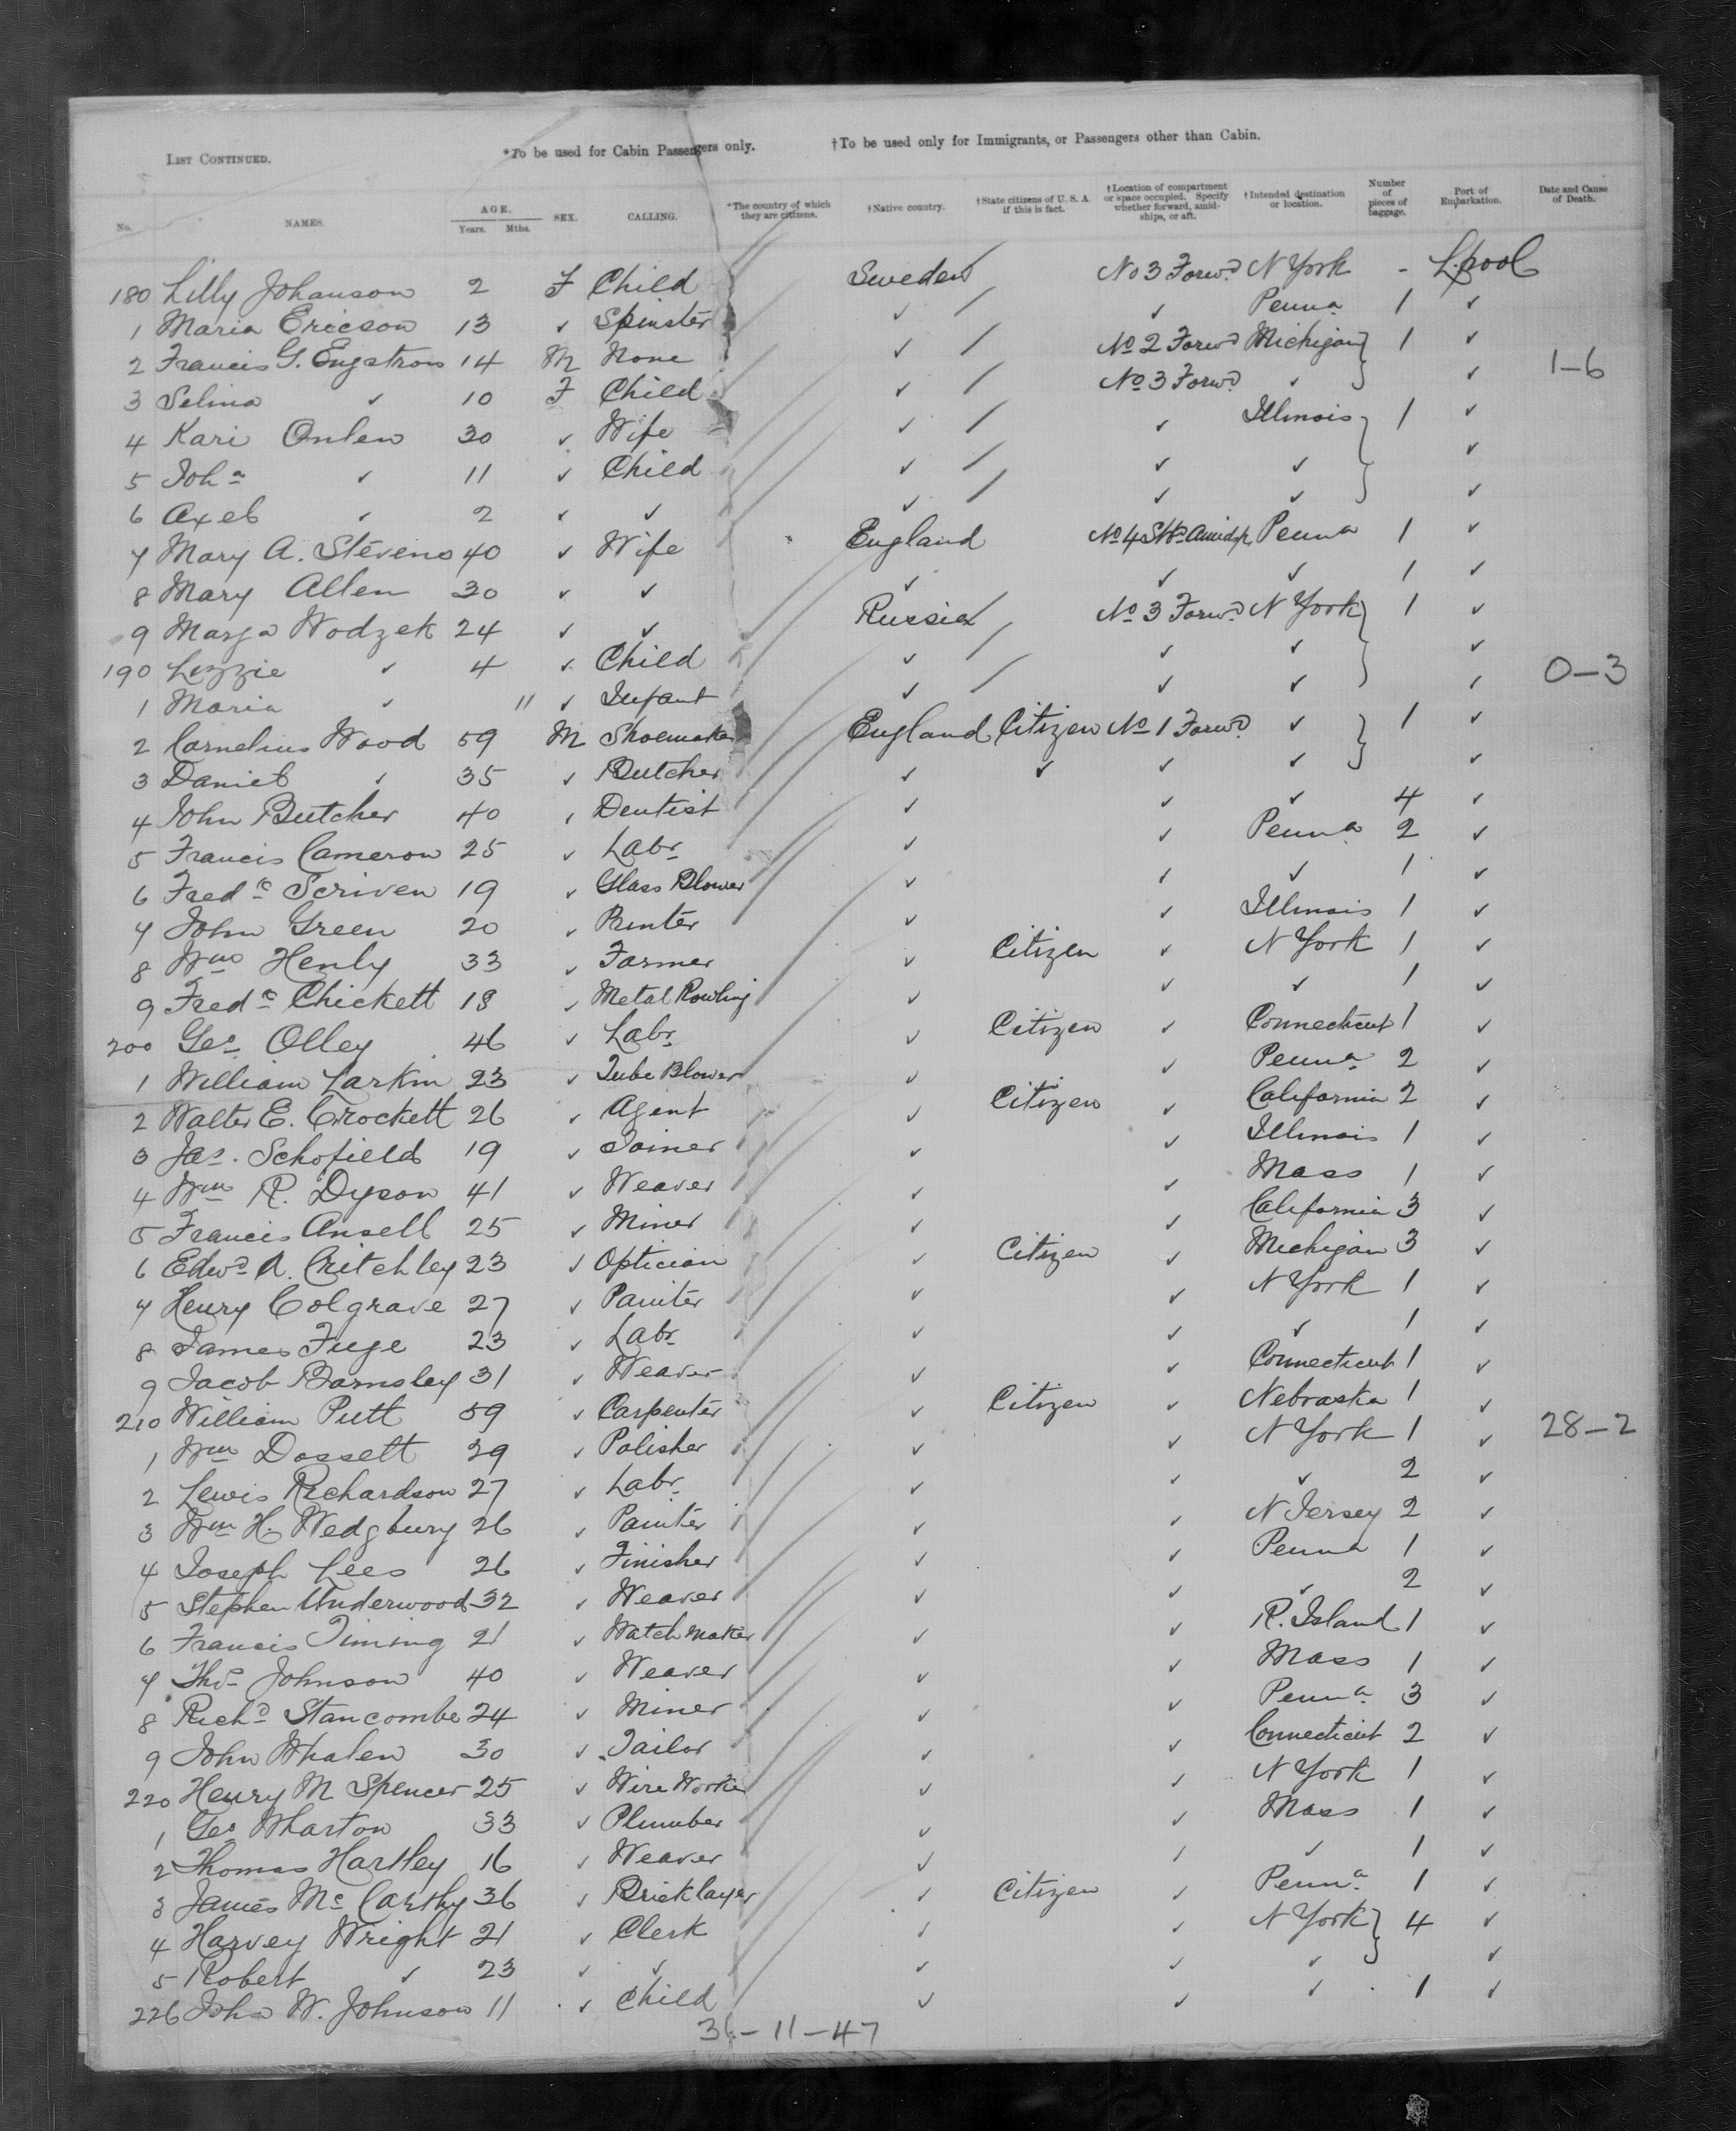 LIST CONTINUED. *To be used for Cabin Passengers only. †To be used only for Immigrants, or Passengers other than Cabin.
No. NAMES. AGE. Years. Mths. SEX. CALLING. *The country of which they are citizens. †Native country. †State citizens of U. S. A. if this is fact. †Location of compartment or space occupied. Specify whether forward, amidships, or aft. †Intended destination or location. Number of pieces of baggage. Port of Embarkation. Date and Cause of Death.
180 Lilly Johanson 2 F Child Sweden / No 3 Forwd N York - L.pool
1 Maria Ericson 13 ✓ Spinster ✓ / ✓ Penna 1 ✓
2 Francis G. Engstrom 14 M None ✓ / No 2 Forwd Michigan } 1 ✓
3 Selina ✓ 10 F Child ✓ / No 3 Forwd ✓ ✓ 1-6
4 Kari Onlen 30 ✓ Wife ✓ / ✓ Illinois } 1 ✓
5 Joha ✓ 11 ✓ Child ✓ / ✓ ✓ ✓
6 Axel ✓ 2 ✓ ✓ ✓ / ✓ ✓ ✓
7 Mary A. Stevens 40 ✓ Wife England No 4 Amidp Penna 1 ✓
8 Mary Allen 30 ✓ ✓ ✓ ✓ ✓ 1 ✓
9 Marja Wodzek 24 ✓ ✓ Russia / No 3 Forwd N York } 1 ✓
190 Lizzie ✓ 4 ✓ Child ✓ / ✓ ✓ ✓
1 Maria ✓ 11 ✓ Infant ✓ / ✓ ✓ ✓ 0-3
2 Cornelius Wood 59 M Shoemaker England Citizen No 1 Forwd ✓ } 1 ✓
3 Daniel ✓ 35 ✓ Butcher ✓ ✓ ✓ ✓ ✓
4 John Butcher 40 ✓ Dentist ✓ ✓ ✓ 4 ✓
5 Francis Cameron 25 ✓ Labr ✓ ✓ Penna 2 ✓
6 Fredc Scriven 19 ✓ Glass Blower ✓ ✓ ✓ 1 ✓
7 John Green 20 ✓ Printer ✓ ✓ Illinois 1 ✓
8 Wm Henly 33 ✓ Farmer ✓ Citizen ✓ N York 1 ✓
9 Fredc Chickett 18 ✓ Metal Rowling ✓ ✓ ✓ 1 ✓
200 Geo Olley 46 ✓ Labr ✓ Citizen ✓ Connecticut 1 ✓
1 William Larkin 23 ✓ Tube Blower ✓ ✓ Penna 2 ✓
2 Walter E. Crockett 26 ✓ Agent ✓ Citizen ✓ California 2 ✓
3 Jas. Schofield 19 ✓ Joiner ✓ ✓ Illinois 1 ✓
4 Wm R. Dyson 41 ✓ Weaver ✓ ✓ Mass 1 ✓
5 Francis Ansell 25 ✓ Miner ✓ ✓ California 3 ✓
6 Edwd A. Critchley 23 ✓ Optician ✓ Citizen ✓ Michigan 3 ✓
7 Henry Colgrave 27 ✓ Painter ✓ ✓ N York 1 ✓
8 James Fuge 23 ✓ Labr ✓ ✓ ✓ 1 ✓
9 Jacob Barnsley 31 ✓ Weaver ✓ ✓ Connecticut 1 ✓
210 William Putt 59 ✓ Carpenter ✓ Citizen ✓ Nebraska 1 ✓
1 Wm Dossett 39 ✓ Polisher ✓ ✓ N York 1 ✓ 28-2
2 Lewis Richardson 27 ✓ Labr ✓ ✓ ✓ 2 ✓
3 Wm H. Wedgbury 26 ✓ Painter ✓ ✓ N Jersey 2 ✓
4 Joseph Lees 26 ✓ Finisher ✓ ✓ Penna 1 ✓
5 Stephen Underwood 32 ✓ Weaver ✓ ✓ ✓ 2 ✓
6 Francis Timing 21 ✓ Watch Maker ✓ ✓ R. Island 1 ✓
7 Thos Johnson 40 ✓ Weaver ✓ ✓ Mass 1 ✓
8 Richd Stancombe 24 ✓ Miner ✓ ✓ Penna 3 ✓
9 John Whalen 30 ✓ Tailor ✓ ✓ Connecticut 2 ✓
220 Henry M Spencer 25 ✓ Wire Worker ✓ ✓ N York 1 ✓
1 Geo Wharton 33 ✓ Plumber ✓ ✓ Mass 1 ✓
2 Thomas Hartley 16 ✓ Weaver ✓ ✓ ✓ 1 ✓
3 James Mc Carthy 36 ✓ Bricklayer ✓ Citizen ✓ Penna 1 ✓
4 Harvey Wright 21 ✓ Clerk ✓ ✓ N York } 4 ✓
5 Robert ✓ 23 ✓ ✓ ✓ ✓ ✓ ✓
226 John W. Johnson 11 ✓ Child ✓ ✓ ✓ 1 ✓
36-11-47